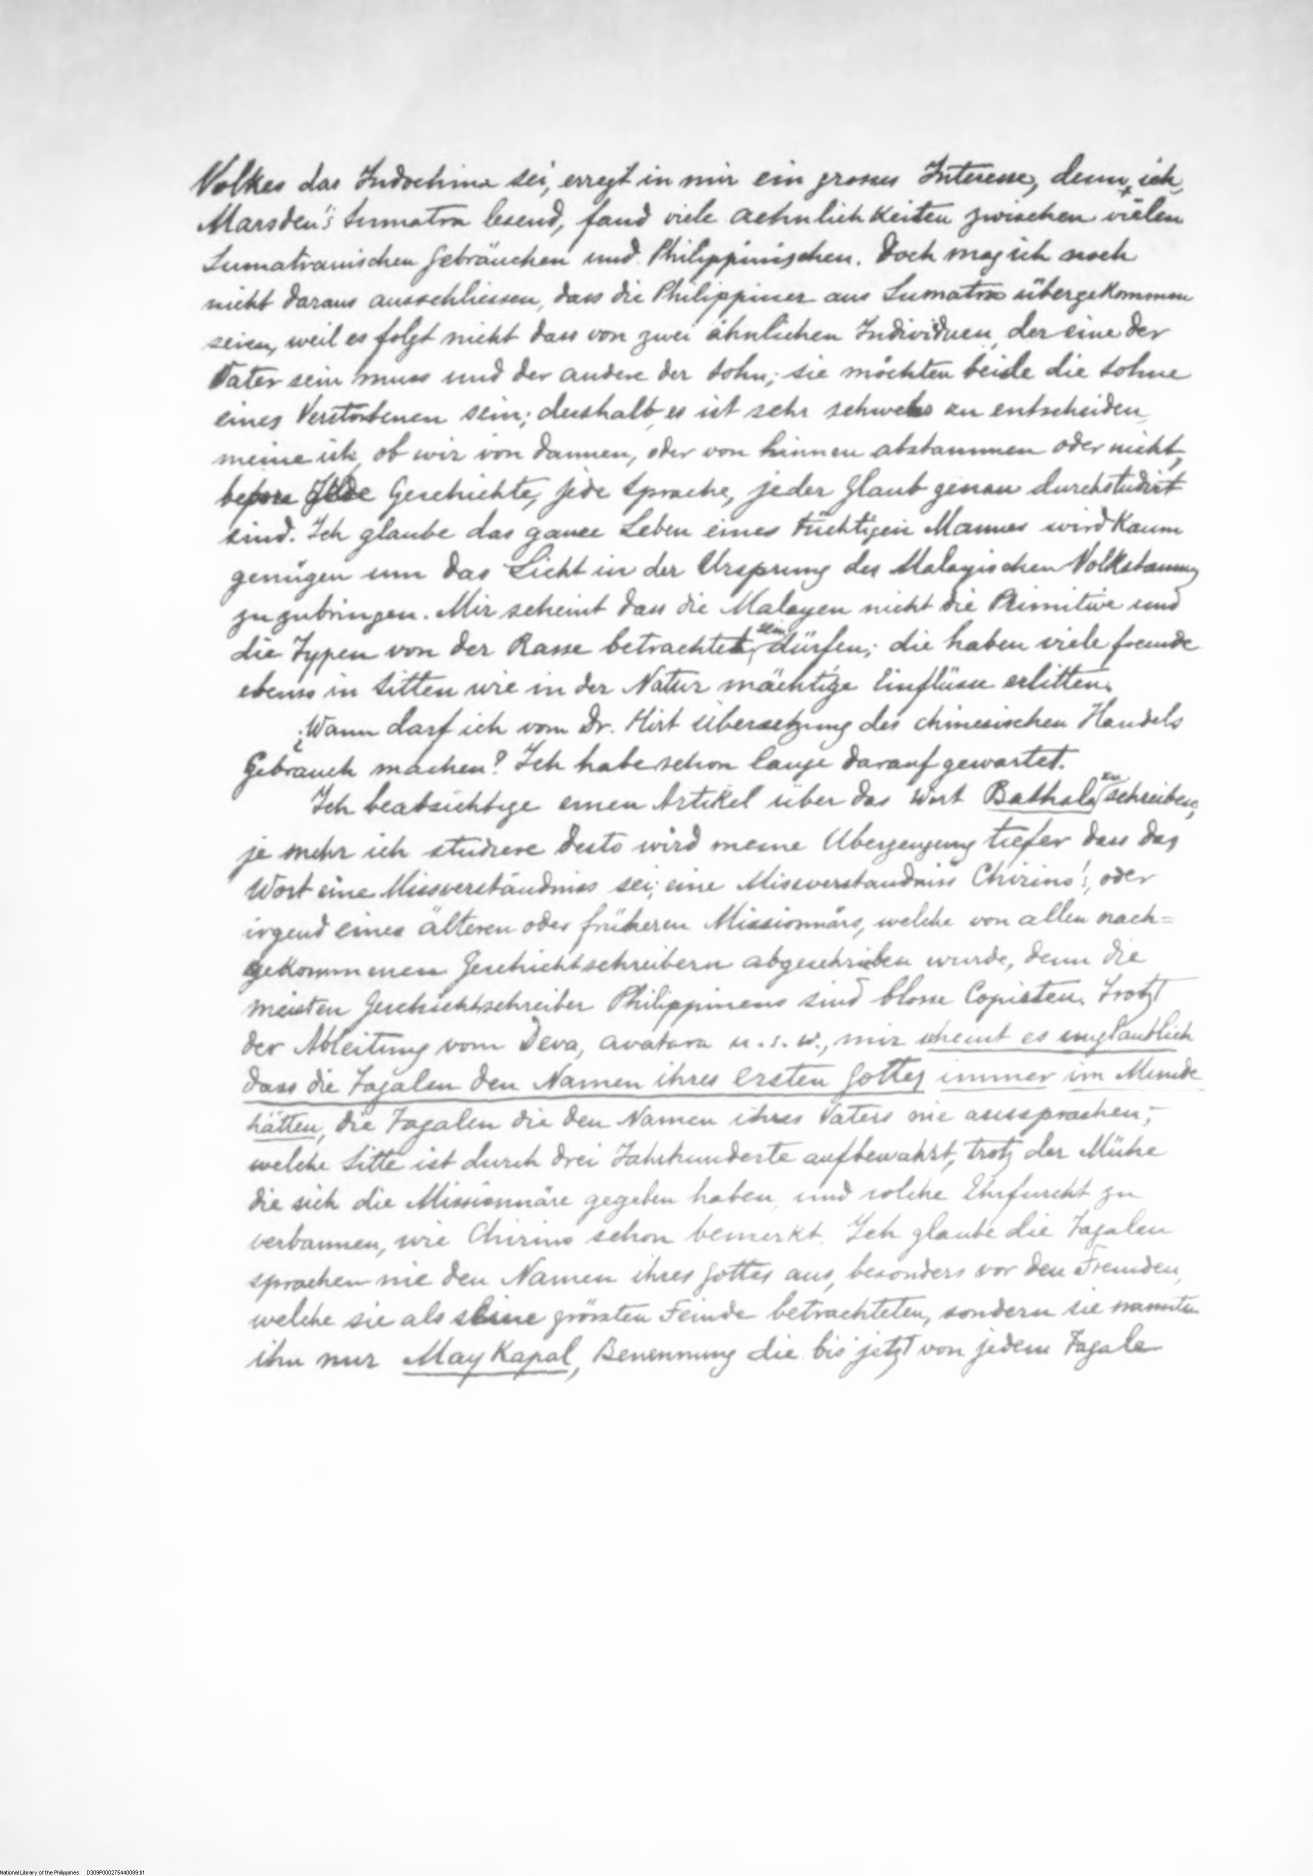 Volkes das Indochina sei, erregt in mir ein grosses Interesse, denn ich,
Marsden's Sumatra lesend, fand viele aehnlichkeiten zwischen vielen
Sumatranischen Gebräuchen und Philippinischen. Doch mag ich noch
nicht daraus ausschliessen, dass die Philippiner aus Sumatra übergekommen
seien, weil es folgt nicht dass von zwei ähnlichen Individuen, der eine der
Vater sein muss und der andere der Sohn; sie möchten beide die Sohne
eines Verstorbenen sein; deshalb es ist sehr schwer zu entscheiden,
meine ich, ob wir von dannen, oder von hinnen abstammen oder nicht,
before Geschichte, jede Sprache, jeder Glaub genau durchstudirt
sind. Ich glaube das ganze Leben eines tüchtigen Mannes wird kaum
genügen um das Licht in der Ursprung des Malayischen Volkstamms
zu zubringen. Mir scheint dass die Malayen nicht die Primitive und
die Typen von der Rasse betrachtet sein dürfen; die haben viele fremde
ebenso in Sitten wie in der Natur mächtige Einflüsse erlitten.
¿Wann darf ich vom Dr. Hirt Übersetzung des chinesischen Handels
Gebrauch machen? Ich habe schon lange darauf gewartet.
Ich beabsichtige einen Artikel über das Wort Bathala zu schreiben,
je mehr ich studiere desto wird meine Überzeugung tiefer dass das
Wort eine Missverständniss sei; eine Missverständniss Chirino's, oder
irgend eines älteren oder früheren Missionnärs, welche von allen nach=
gekommenen Geschichtschreibern abgeschrieben wurde, denn die
meisten Geschichtsschreiber Philippinens sind blosse Copisten. Trotz
der Ableitung vom Deva, avatara u.s.w., mir scheint es unglaublich
dass die Tagalen den Namen ihres ersten Gottes immer im Munde
hätten, die Tagalen die den Namen ihres Vaters nie aussprachen;
welche Sitte ist durch drei Jahrhunderte aufbewahrt, trotz der Mühe
die sich die Missionnäre gegeben haben, und solche Ehrfurcht zu
verbannen, wie Chirino schon bemerkt. Ich glaube die Tagalen
sprachen nie den Namen ihres Gottes aus, besonders vor den Fremden,
welche sie als seine grössten Feinde betrachteten, sondern sie nannten
ihn nur May Kapal, Benennung die bis jetzt von jedem Tagale
National Library of the Philippines